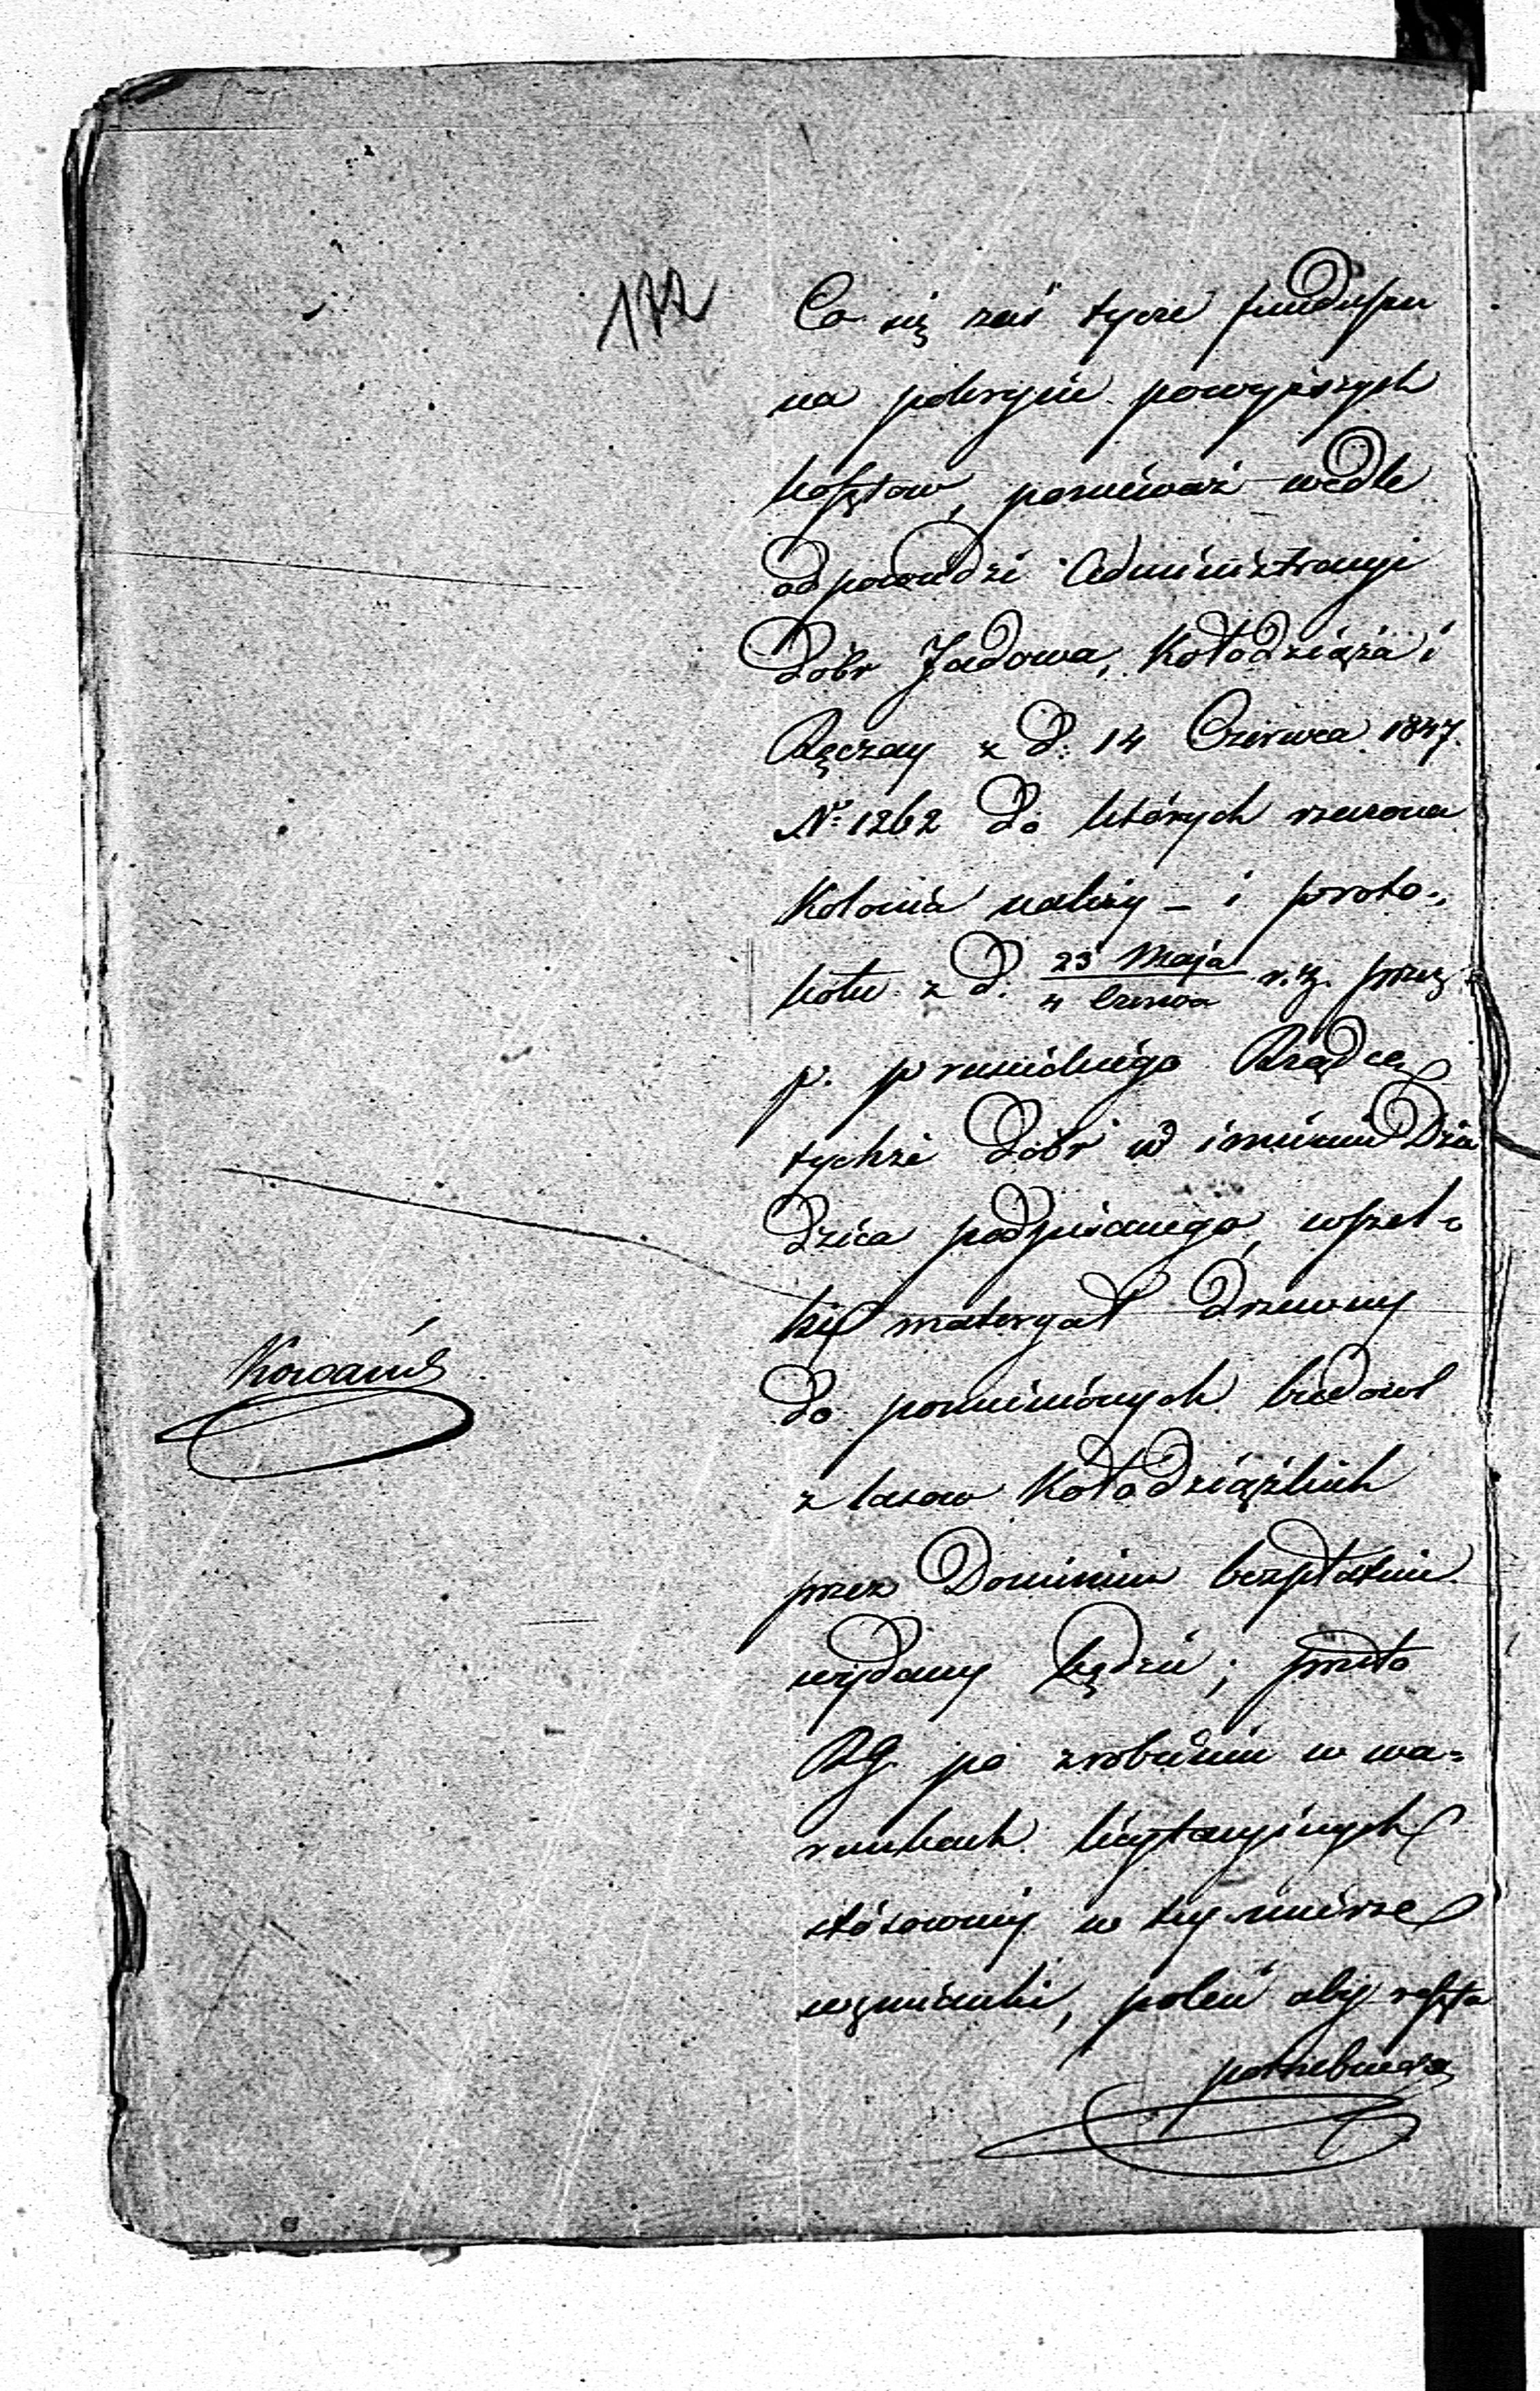 172
Co się zaś tycze funduszu
na pokrycie powyższych
kosztow, ponieważ wedle
odpowiedzi Administracyi
Dóbr Jadowa, Kołodziąża i
Ręczay z d: 14 Czerwca 1847.
No 1262 do których rzeczona
Kolonia należy – i proto-
kołu z d. 23 Maja / 4 Czerwca r. z. przez
p. Rządcę
tychże Dóbr w imieniu Dzie
dzica podpisanego, wszel-
ki materyał drzewny
do pomienionych budowl
z lasow Kołodziązkich
przez Dominium bezpłatnie
wydany będzie; przeto
RG. po zrobieniu w wa-
runkach licytacyinych
stósowney w tey mierze
wzmianki, poleci aby reszta
potrzebnego